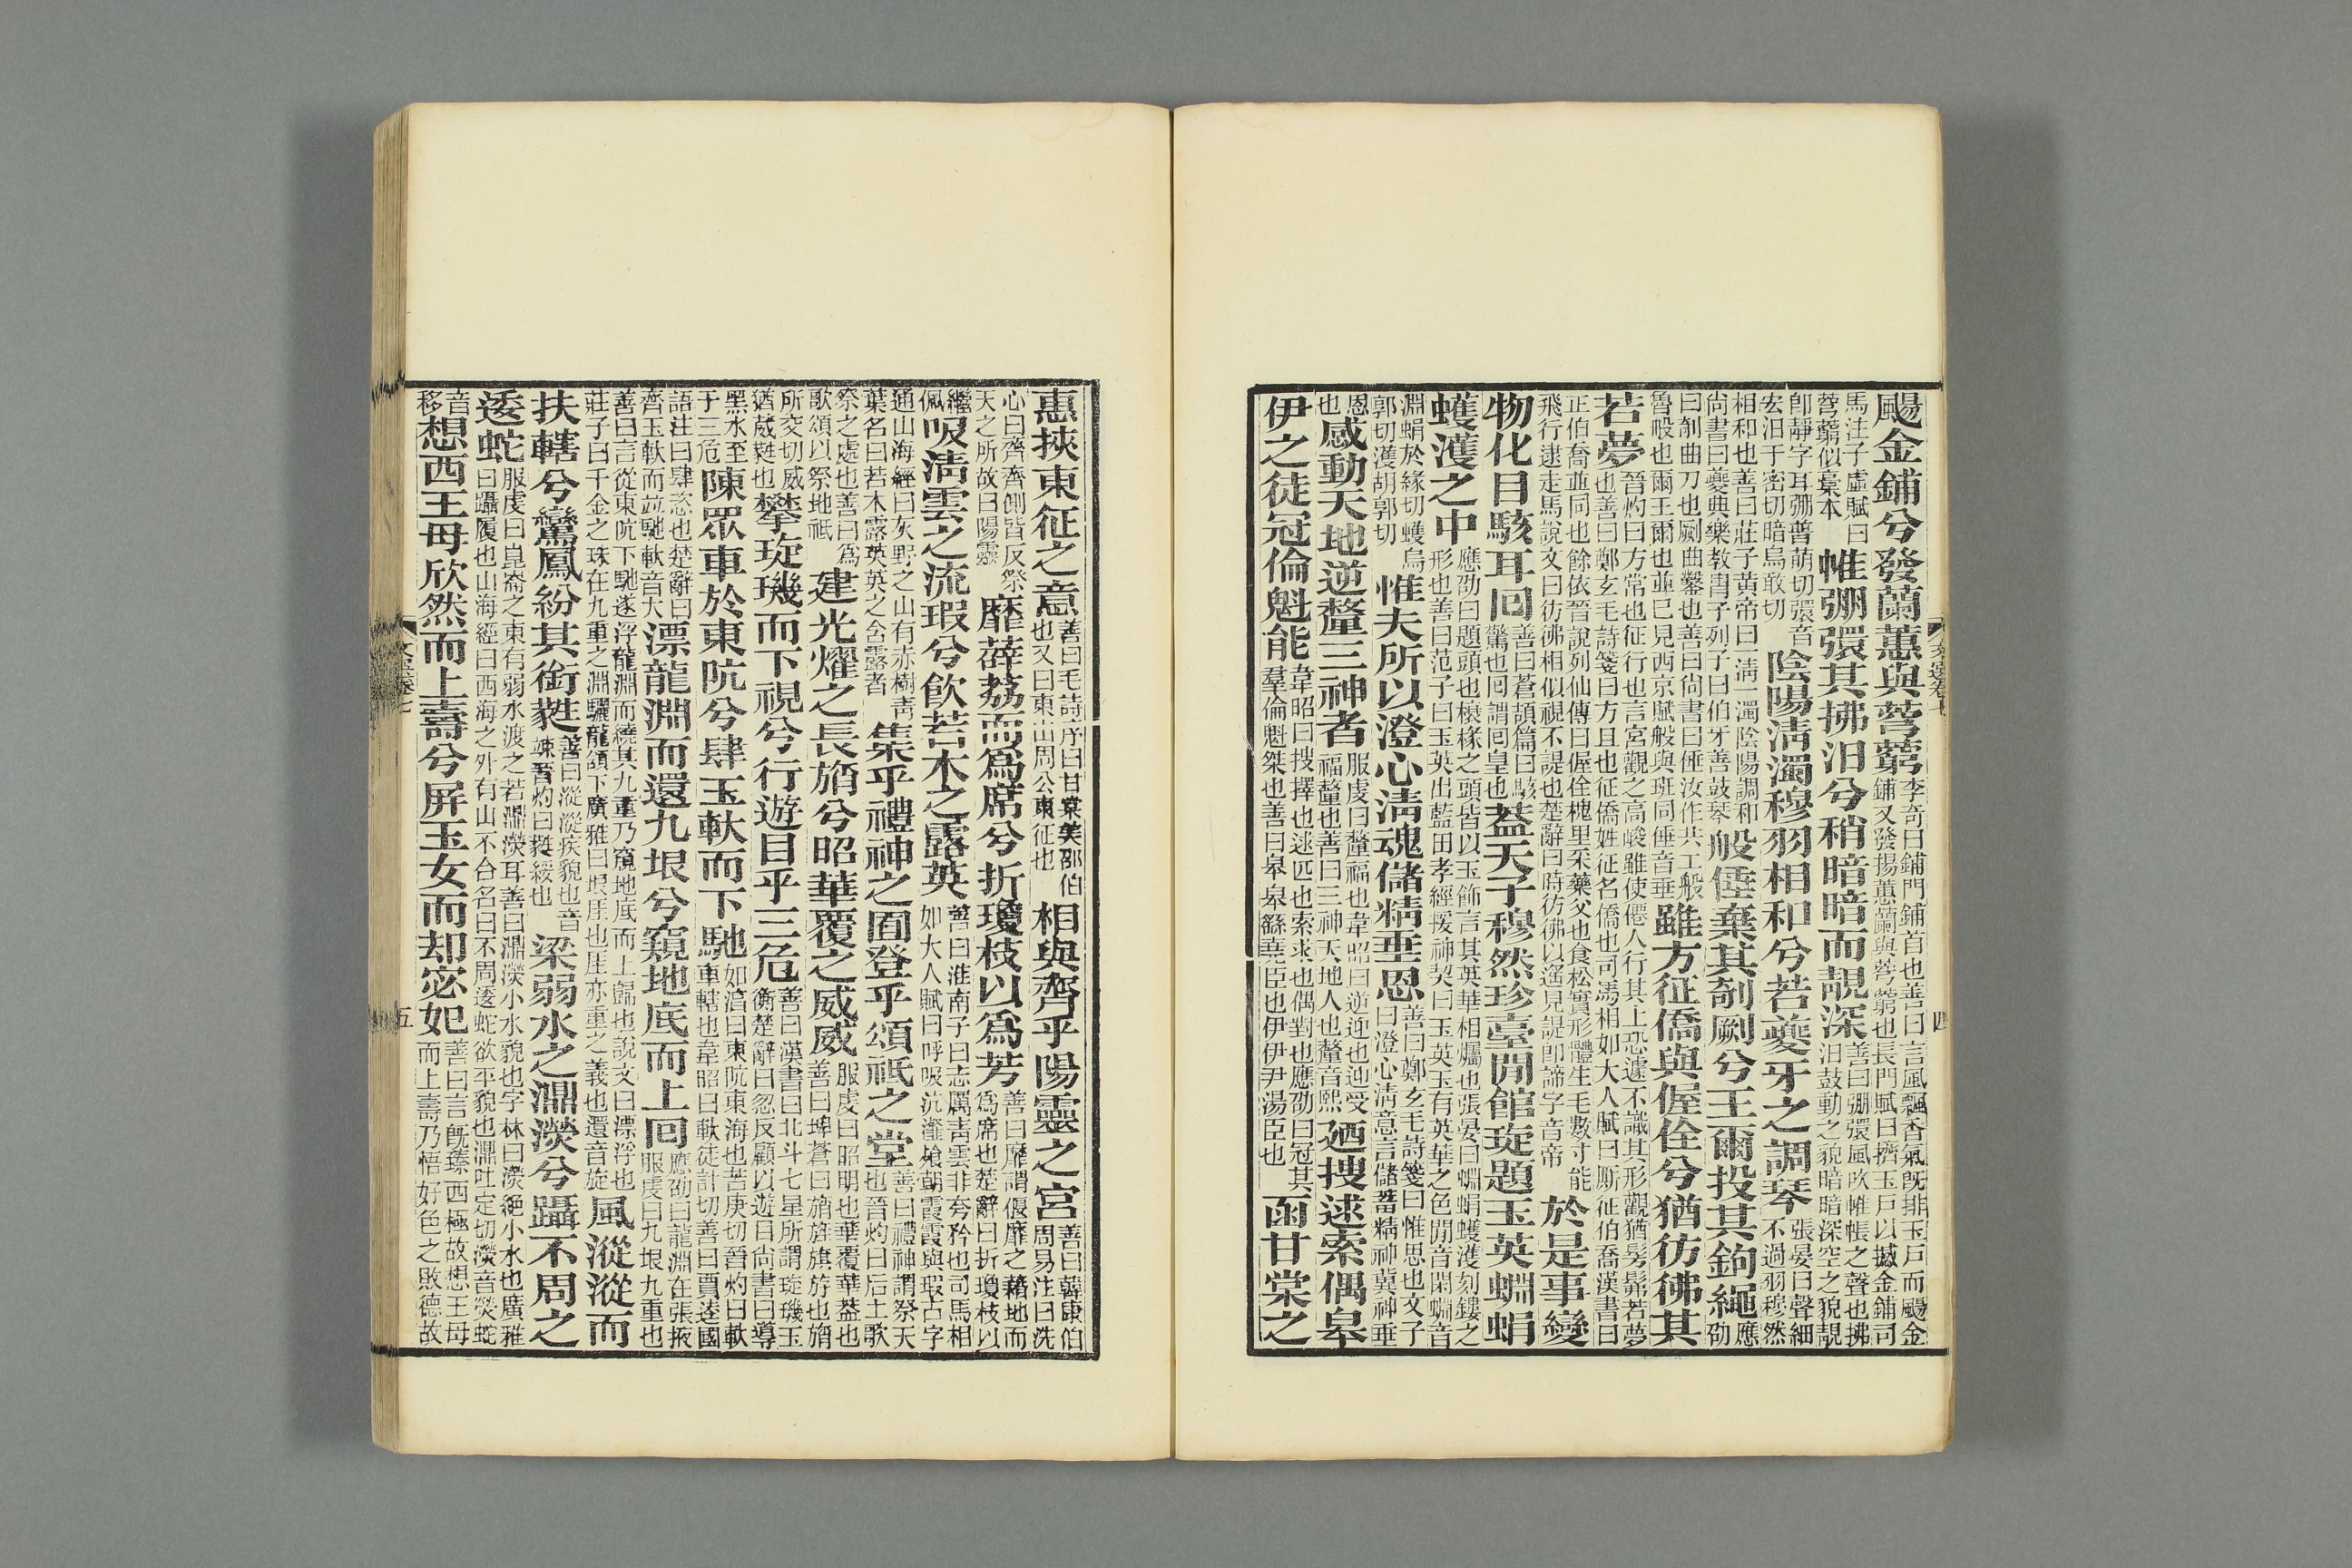 颺金鋪兮發蘭蕙與芎藭李奇曰鋪門鋪首也善曰言風飄香氣旣排玉戶而颺金鋪又發揚蕙蘭與芎藭也長門賦曰擠玉戶以撼金鋪司
馬注子虛賦曰芎藭似藁本帷弸彋其拂汨兮稍暗暗而靚深善曰弸彋風吹帷帳之聲也拂汨鼓動之貌暗暗深空之貌靚
卽靜字耳弸普萌切彋音宏汨于密切暗烏敢切陰陽清濁穆羽相和兮若夔牙之調琴張晏曰聲細不過羽穆然
相和也善曰莊子黃帝曰一清一濁陰陽調和尚書曰夔典樂教胄子列子曰伯牙善鼓琴般倕棄其剞劂兮王爾投其鉤繩應劭
曰剞曲刀也劂曲鑿也善曰尚書曰倕汝作共工般魯般也爾王爾也並已見西京賦般與班同倕音垂雖方征僑與偓佺兮猶彷彿其
若夢晉灼曰方常也征行也言宮觀之高峻雖使僊人行其上恐遽不識其形觀猶髣髴若夢也善曰鄭玄毛詩箋曰方且也征僑姓征名僑也司馮相如大人賦曰厮征伯喬漢書曰
正伯喬並同也餘依晉說列仙傳曰偓佺槐里采藥父也食松實形體生毛數寸能飛行逮走馬說文曰彷彿相似視不諟也楚辭曰時彷彿以遙見諟卽諦字音帝於是事變
物化目駭耳回善曰蒼頡篇曰駭驚也回謂回皇也蓋天子穆然珍臺閒館琁題玉英蜵蜎
蠖濩之中應劭曰題頭也榱椽之頭皆以玉飾言其英華相爥也張晏曰蜵蜎蠖濩刻鏤之形也善曰范子曰玉英出藍田孝經援神契曰玉英玉有英華之色閒音閑蜵音
淵蜎於緣切蠖烏郭切濩胡郭切惟夫所以澄心清魂儲精垂恩善曰鄭玄毛詩箋曰惟思也文子曰澄心清意言儲蓄精神冀神垂
恩也感動天地逆釐三神者服虔曰釐福也韋昭曰逆迎也迎受福釐也善曰三神天地人也釐音熙廼搜逑索偶皋
伊之徒冠倫魁能韋昭曰搜擇也逑匹也索求也偶對也應劭曰冠其羣倫魁桀也善曰皋皋繇堯臣也伊伊尹湯臣也函甘棠之
文選卷七
四
惠挾東征之意善曰毛詩序曰甘棠美邵伯也又曰東山周公東征也相與齊乎陽靈之宮善曰韓康伯周易注曰洗
心曰齊齊側皆反祭天之所故曰陽靈靡薜荔而爲席兮折瓊枝以爲芳善曰靡謂偃靡之藉地而爲席也楚辭曰折瓊枝以
繼佩吸清雲之流瑕兮飲若木之露英善曰淮南子曰志厲青雲非夸矜也司馬相如大人賦曰呼吸沆瀣飡朝霞霞與瑕古字
通山海經曰灰野之山有赤樹青葉名曰若木露英英之含露者集乎禮神之囿登乎頌祇之堂善曰禮神謂祭天也晉灼曰后土歌
祭之處也善曰爲歌頌以祭地祇建光燿之長旓兮昭華覆之威威服虔曰昭明也華覆華葢也善曰埤蒼曰旓旌旗旒也旓
所交切威猶葳蕤也攀琁璣而下視兮行遊目乎三危善曰漢書曰北斗七星所謂琁璣玉衡楚辭曰忽反顧以遊目尚書曰導
黑水至于三危陳眾車於東阬兮肆玉軑而下馳如淳曰東阬東海也苦庚切晉灼曰軑車轄也韋昭曰軑徒計切善曰賈逵國
語注曰肆恣也楚辭曰齊玉軑而竝馳軑音大漂龍淵而還九垠兮窺地底而上回應劭曰龍淵在張掖服虔曰九垠九重也
善曰言從東阬下馳遂浮龍淵而繞其九重乃窺地底而上歸也說文曰漂浮也莊子曰千金之珠在九重之淵驪龍頷下廣雅曰垠厓也厓亦重之義也還音旋風漎漎而
扶轄兮鸞鳳紛其銜蕤善曰漎漎疾貌也音竦晉灼曰蕤綏也梁弱水之濎濴兮躡不周之
逶蛇服虔曰崑崙之東有弱水渡之若濎濴耳善曰濎濴小水貌也字林曰濴絕小水也廣雅曰躡履也山海經曰西海之外有山不合名曰不周逶蛇欲平貌也濎吐定切濴音熒蛇
音移想西王母欣然而上壽兮屏玉女而却宓妃善曰言旣臻西極故想王母而上壽乃悟好色之敗德故
文選卷七
五